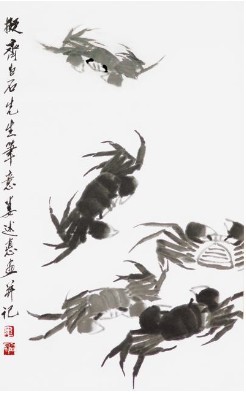 拟齐白石先生笔意姜述惠画并记